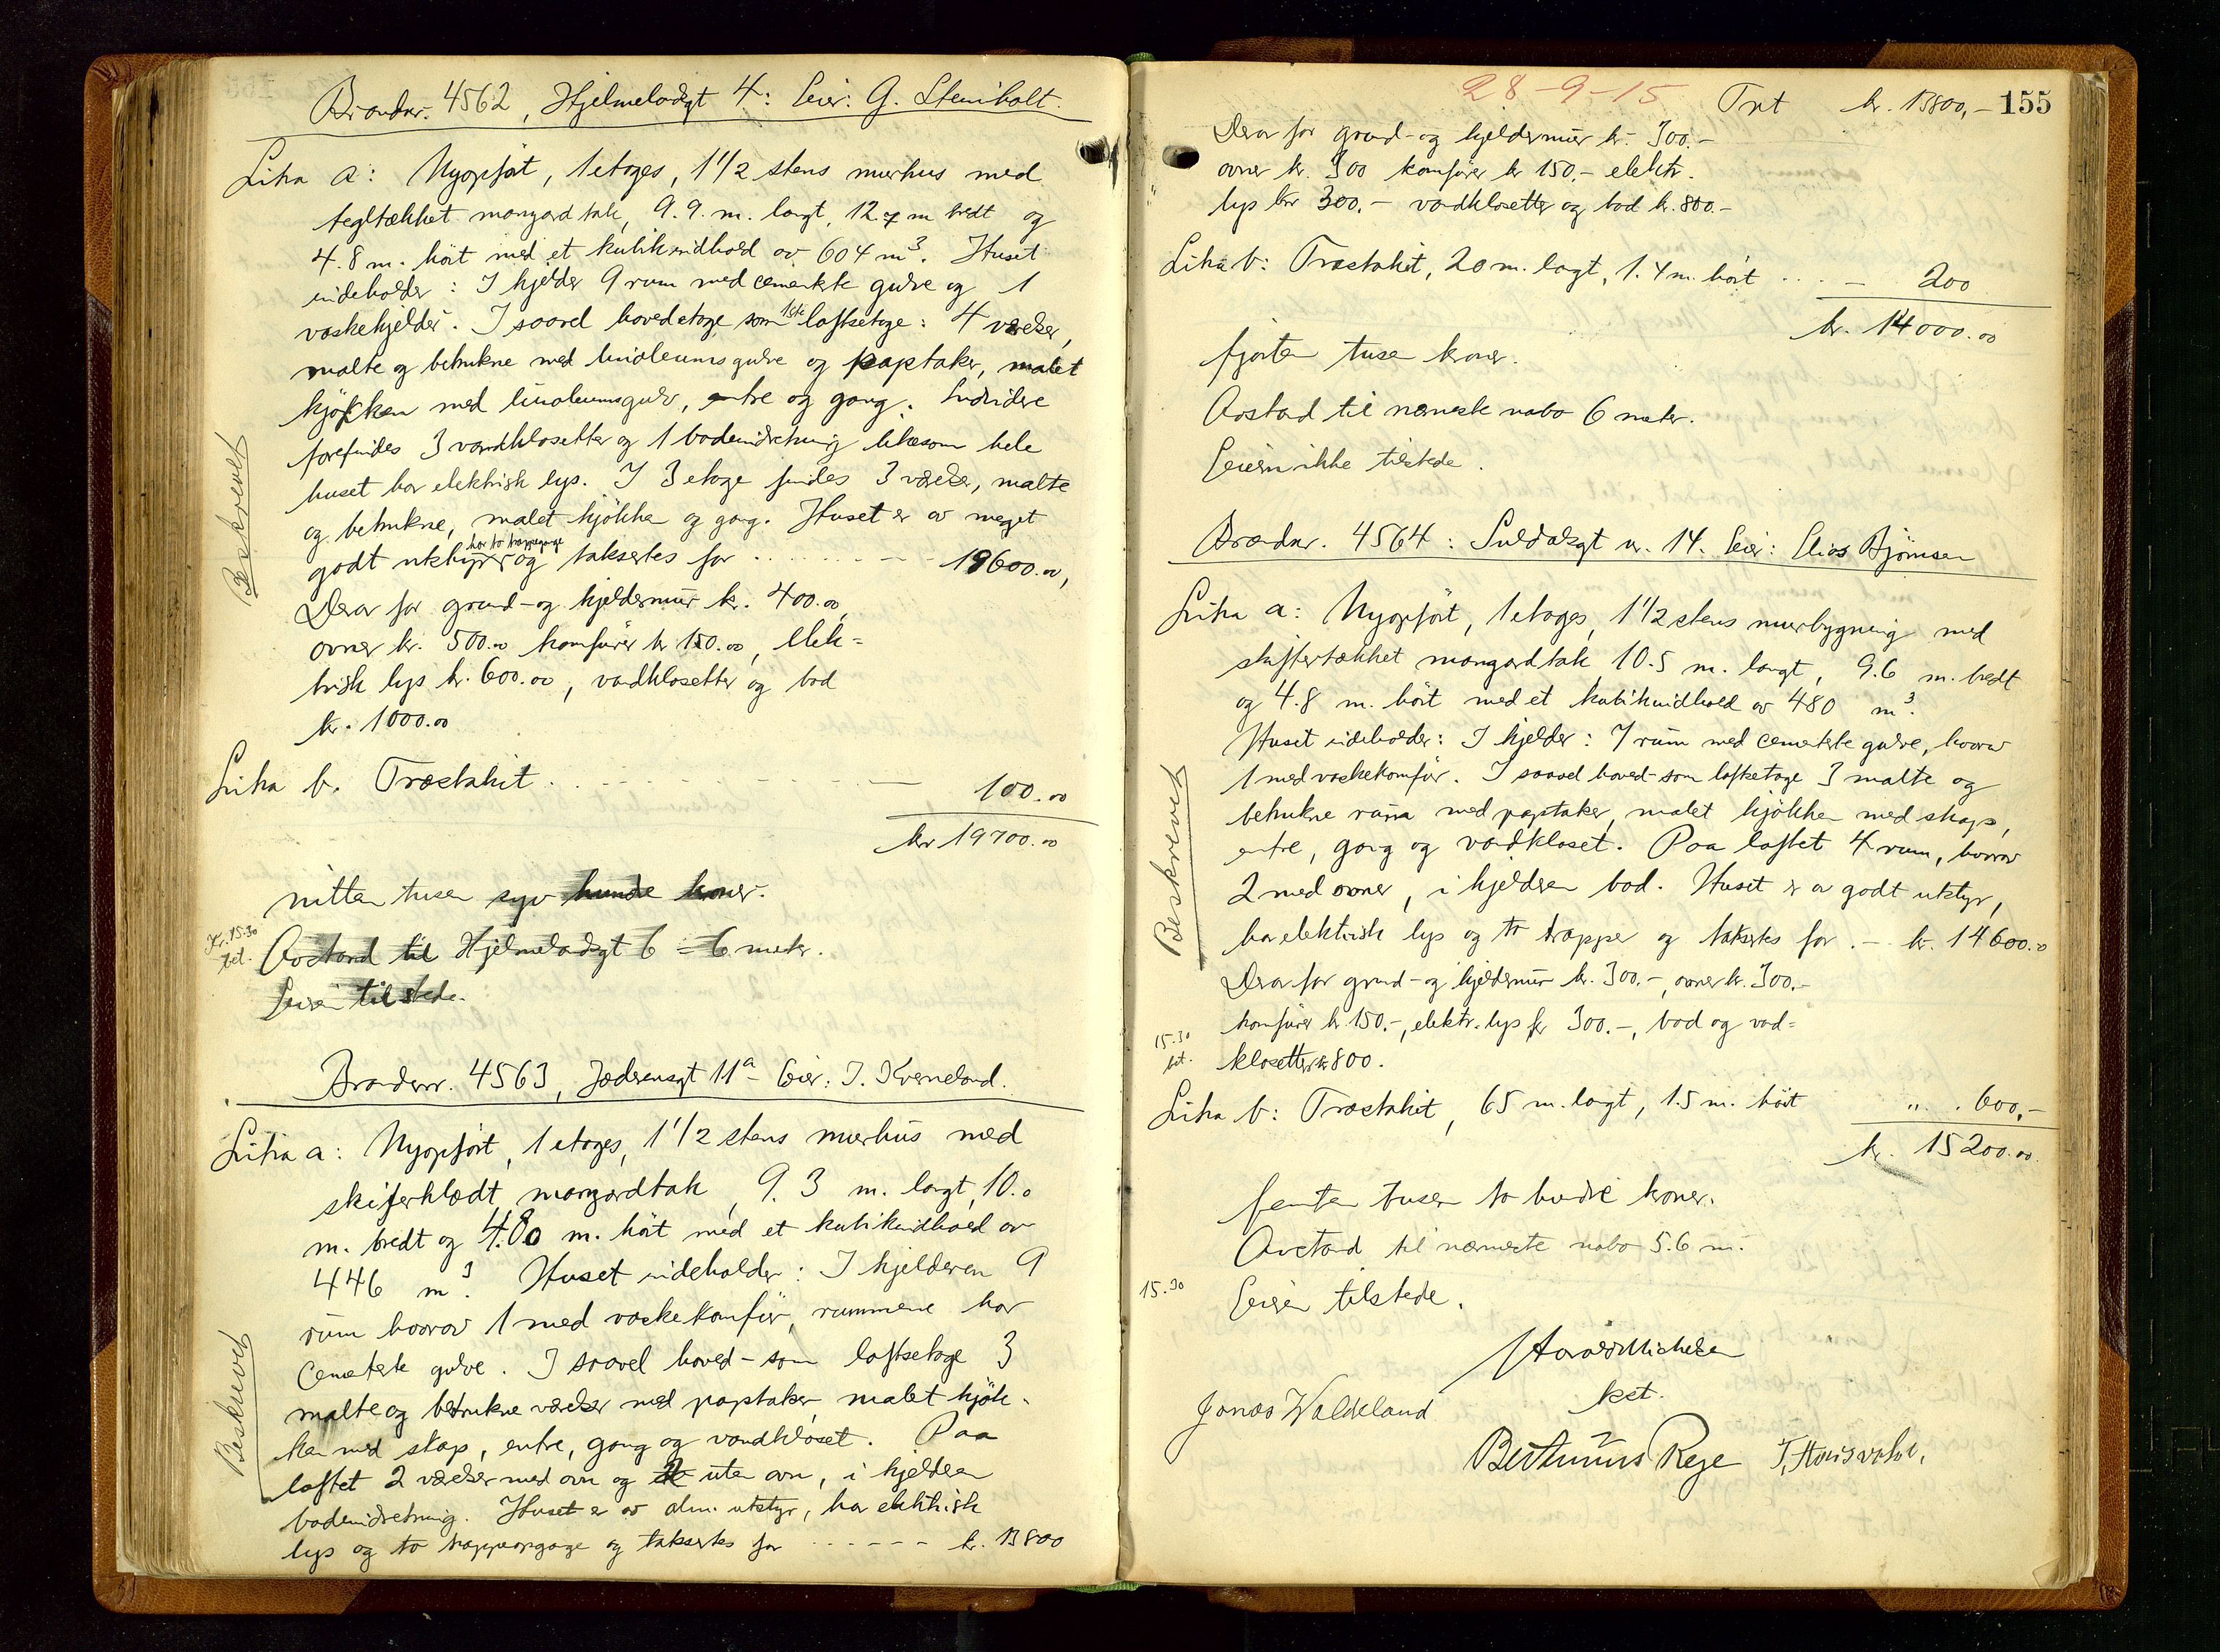 Brandnr. 4562, Hjelmelandsgt 4: Eier: G. Steinholt.
Litra a: Nyopført, 1 etages, 1 1/2 stens murhus med
tegltækket mansard tak, 9.9. m. langt, 12.7 m bredt og
4.8 m. høit med et kubikindhold av 604 m³. Huset
indeholder: I kjelder 9 rum med cementerte gulve og 1
vaskekjelder. I saavel hovedetage som 1ste loftsetage: 4 værelser,
malte og betrukne med linoleumsgulve og paptaker, malet
kjøkken med linoleumsgulv, entre og gang. Endvidere
forefindes 3 vandklosetter og 1 badeindretning likesom hele
huset har elektrisk lys. I 3 etage findes 3 værelser, malte
og betrukne, malet kjøkken og gang. Huset er av meget
godt utstyr, har to trappegange og taksertes for . . . . . . . - - 19600.00,
Derav for grund- og kjeldermur kr. 400.00,
ovner kr. 500.00 komfürer kr 150.00, elek=
trisk lys kr. 600.00, vandklosetter og bad
kr. 1000.00
Litra b. Træstakit . . - - - - - - 100.00
kr 19700.00
nitten tusen syv hundre kroner.
Kr. 15.30
bet.
Avstand til Hjelmelandsgt 6 = 6 meter.
Eieren tilstede.
Beskrevet
Brandnr. 4563, Jæderensgt 11a - Eier: I. Kverneland.
Litra a: Nyopført, 1 etages, 1 1/2 stens murhus med
skiferklædt mansardtak, 9.3 m. langt, 10.0
m. bredt og 4.80 m. høit med et kubikindhold av
446 m³. Huset indeholder: I kjelderen 9
rum hvorav 1 med vaskekomfür, rummene har
cementerte gulve. I saavel hoved- som loftsetage 3
malte og betrukne værelser med paptaker, malet kjøk-
ken med skap, entre, gang og vandkloset. Paa
loftet 2 værelser med ovn og 2 uten ovn, i kjelderen
badeindretning. Huset er av alm. utstyr, har elektrisk
lys og to trappeopgange og taksertes for . . . - - - kr. 13800
Beskrevet
28-9-15
Trpt kr. 13800,- 155
Derav for grund- og kjeldermur kr. 300.-
ovner kr. 300 komfürer kr 150.- elektr.
lys kr 300.- vandklosetter og bad kr. 800.-
Litra b: Træstakit, 20 m. langt, 1.4 m. høit . . . - 200
kr. 14000.00
fjorten tusen kroner.
Avstand til nærmeste nabo 6 meter.
Eieren ikke tilstede.
Brandnr. 4564: Suldalsgt nr. 14. Eier: Elias Bjørnsen
Litra a: Nyopført, 1 etages, 1 1/2 stens murbygning med
skiffertækket mansardtak 10.5 m. langt, 9.6 m. bredt
og 4.8 m. høit med et kubikindhold av 480 m³.
Huset indeholder: I kjelder: 7 rum med cementerte gulve, hvorav
1 med vaskekomfür. I saavel hoved- som loftsetage 3 malte og
betrukne rum med paptaker, malet kjøkken med skaps,
entre, gang og vandkloset. Paa loftet 4 rum, hvorav
2 med ovner, i kjelderen bad. Huset er av godt utstyr,
har elektrisk lys og to trapper og taksertes for . - kr. 14600.00
Derav for grund- og kjeldermur kr. 300.-, ovner kr. 300.-
komfürer kr 150.-, elektr. lys kr 300.-, bad og vand=
klosetter kr 800.
15.30
bet.
Beskrevet
Litra b: Træstakit, 65 m. langt, 1.5 m. høit " . 600,-
kr. 15200.00
femten tusen to hundre kroner.
Avstand til nærmeste nabo 5.6 m.
15.30
Eieren tilstede.
Harald Michelsen
kst.
Jonas Waldeland
Berthinius Rege